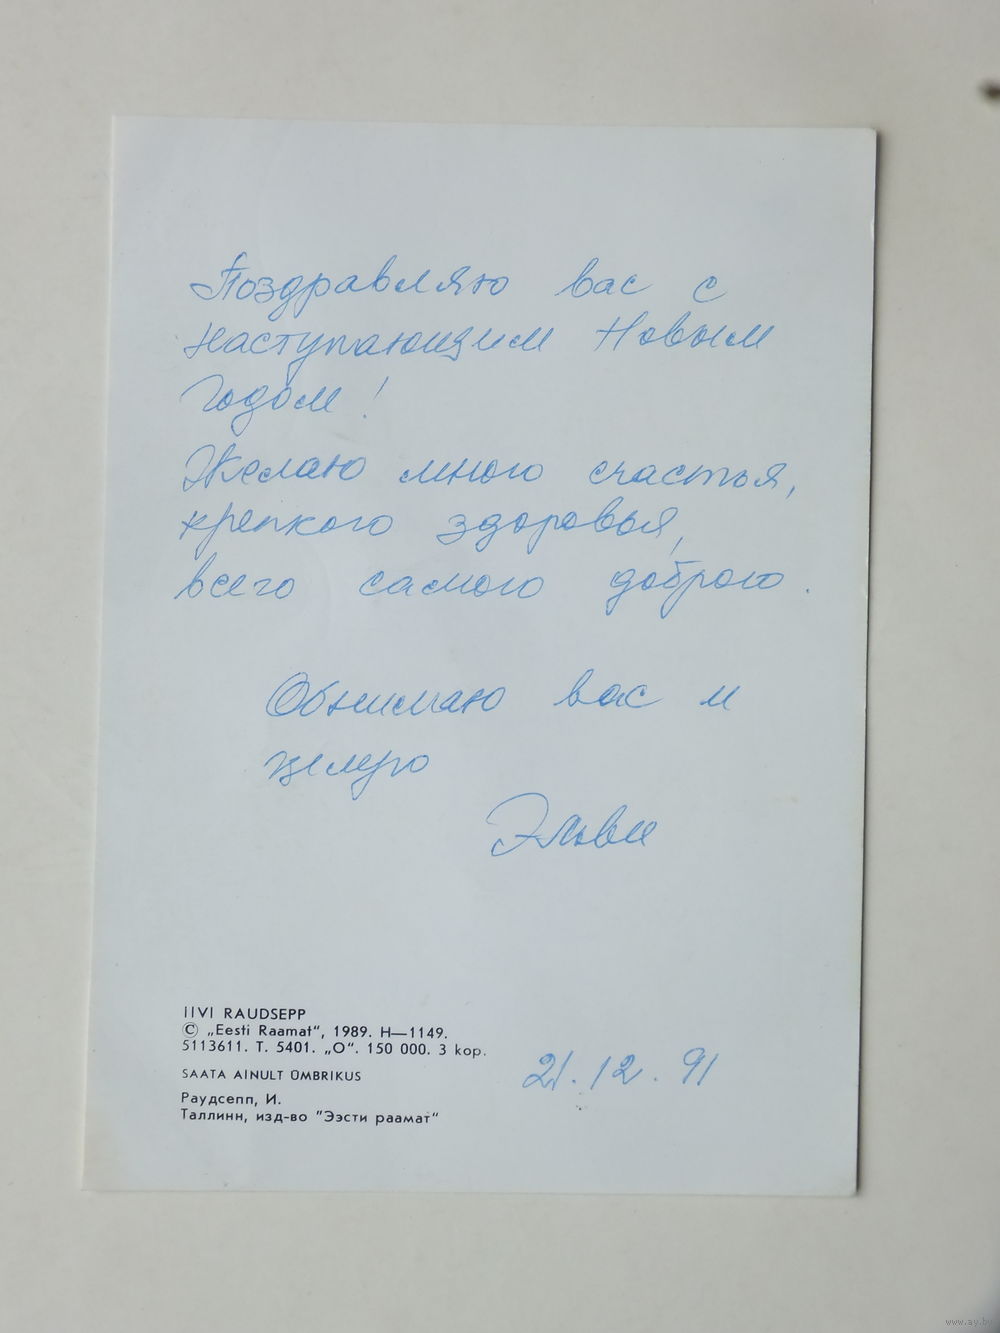 Поздравляю вас с
наступающим Новым
Годом!
Желаю много счастья,
крепкого здоровья,
всего самого доброго.
Обнимаю вас и
целую
Эльви
IIVI RAUDSEPP
© „Eesti Raamat“, 1989. H—1149.
5113611. T. 5401. „O“. 150 000. 3 kop.
21.12.91
SAATA AINULT ÜMBRIKUS
Раудсепп, И.
Таллинн, изд-во "Ээсти раамат"
www.ay.by